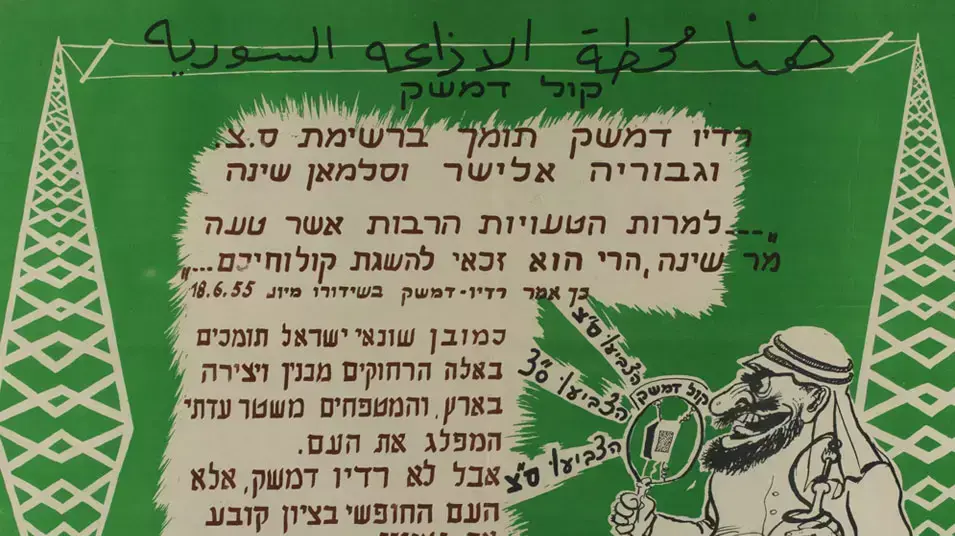 هنا محطة الاذاعه السوريه
קול דמשק
רדיו דמשק תומך ברשימת ס.צ.
וגבוריה אלישר וסלמאן שינה
"....למרות הטעויות הרבות אשר טעה
מר שינה, הרי הוא זכאי להשגת קולותיכם..."
כך אמר רדיו-דמשק בשידורו מיום 18.6.55
כמובן שונאי ישראל תומכים
באלה הרחוקים מבנין ויצירה
בארץ, והמטפחים משטר עדתי
המפלג את העם.
אבל לא רדיו דמשק, אלא
העם החופשי בציון קובע
הצביעו ס"צ
הצביעו ס"צ
הצביעו ס"צ
קול דמשק